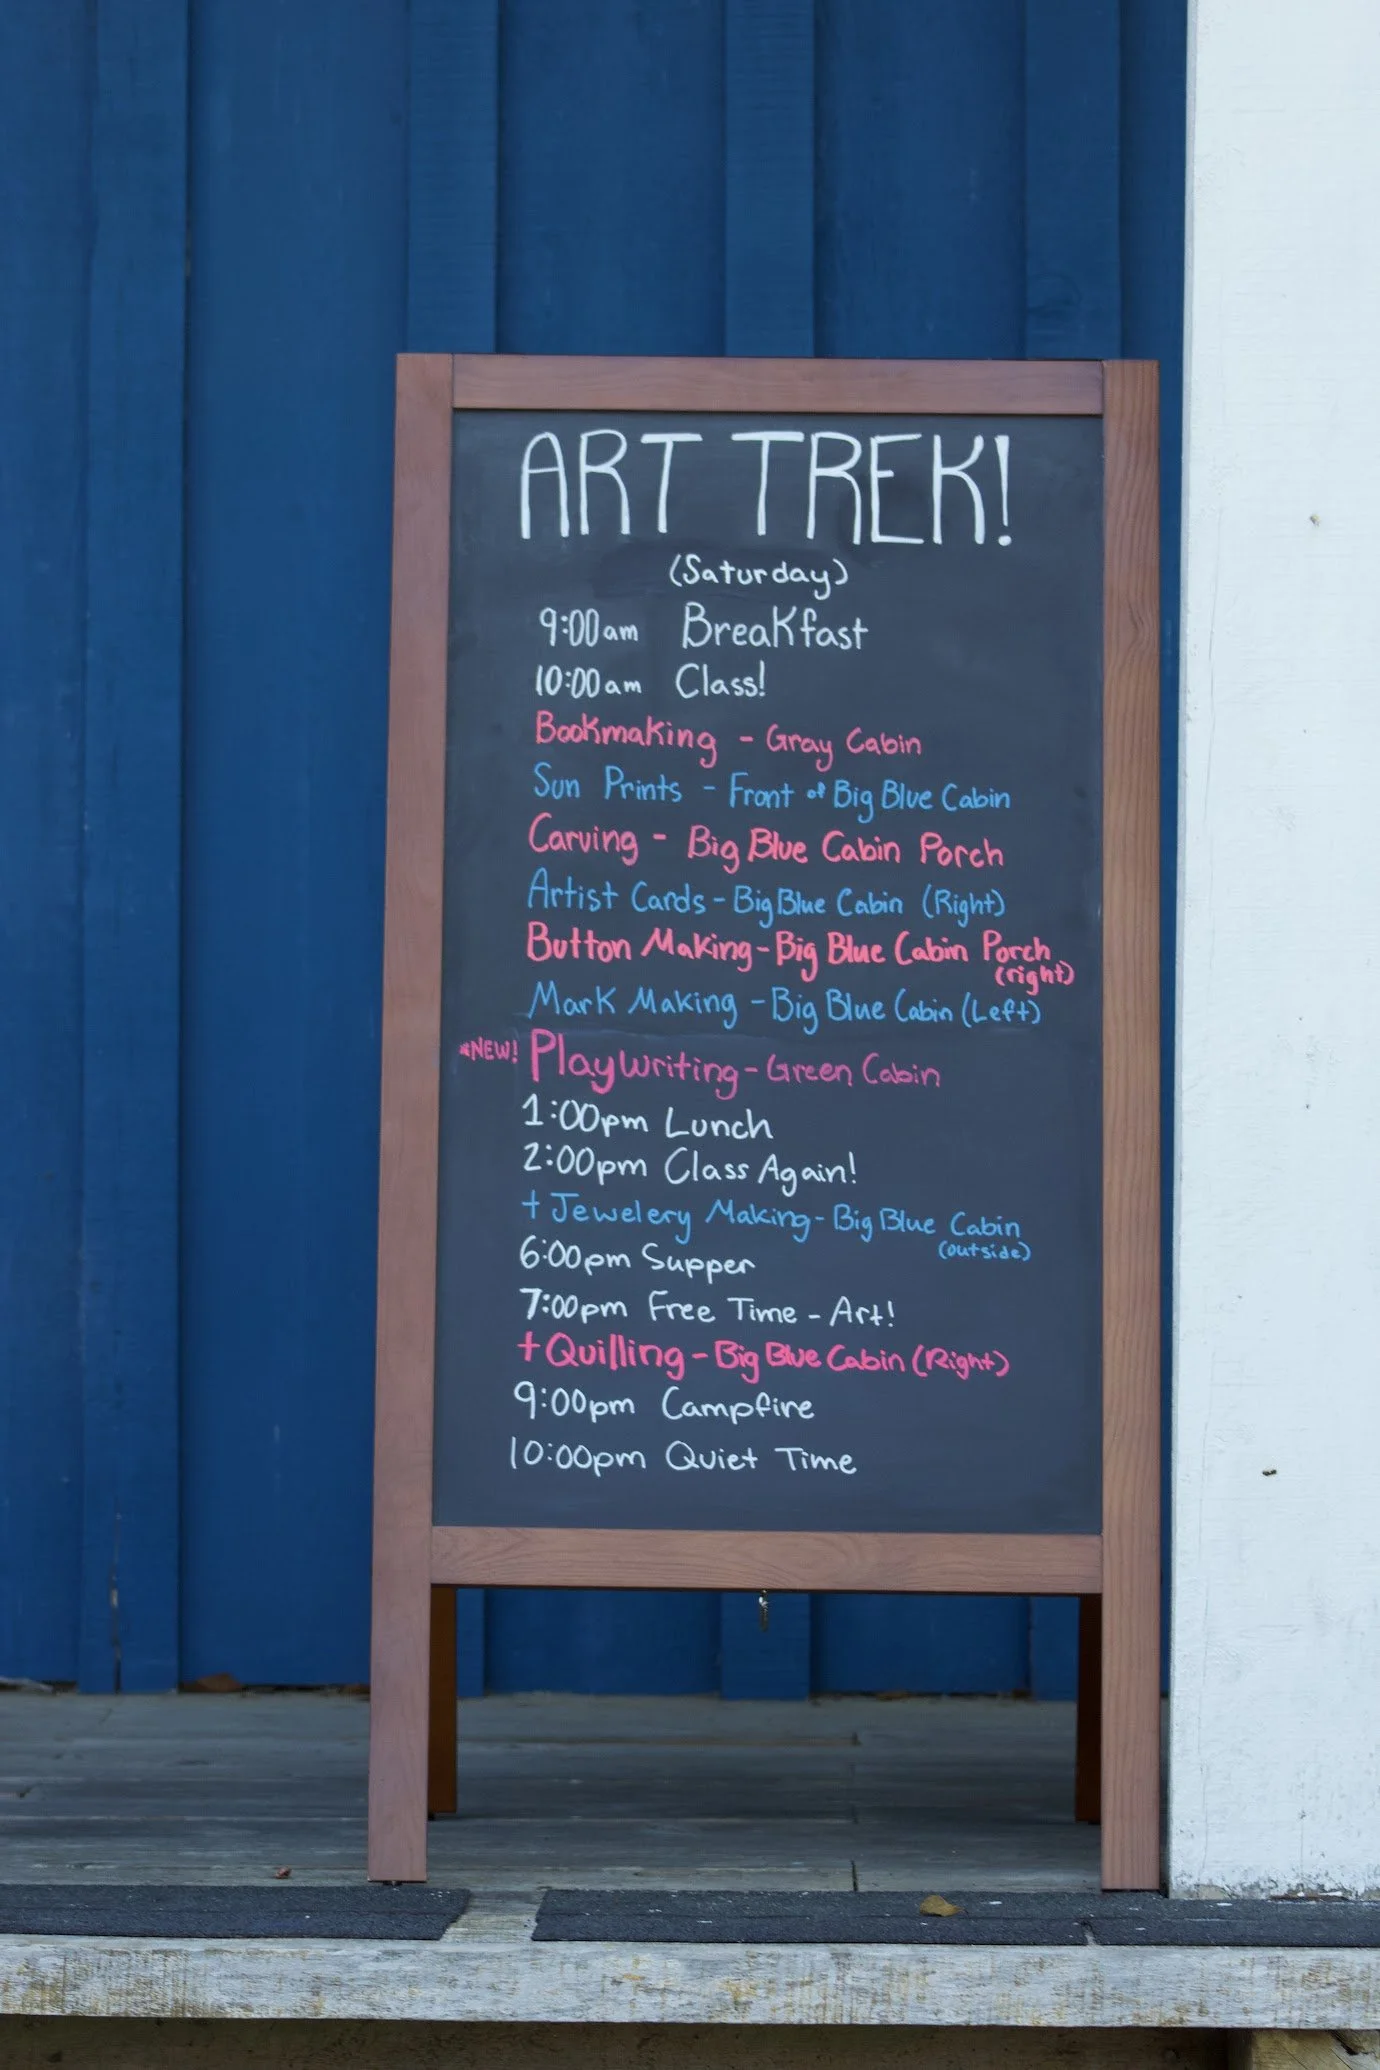 ART TREK!
(Saturday)
9:00am Breakfast
10:00am Class!
Bookmaking - Gray Cabin
Sun Prints - Front of Big Blue Cabin
Carving - Big Blue Cabin Porch
Artist Cards - Big Blue Cabin (Right)
Button Making - Big Blue Cabin Porch
(right)
Mark Making - Big Blue Cabin (Left)
*NEW! Playwriting - Green Cabin
1:00pm Lunch
2:00pm Class Again!
+ Jewelery Making - Big Blue Cabin
(outside)
6:00pm Supper
7:00pm Free Time - Art!
+ Quilling - Big Blue Cabin (Right)
9:00pm Campfire
10:00pm Quiet Time